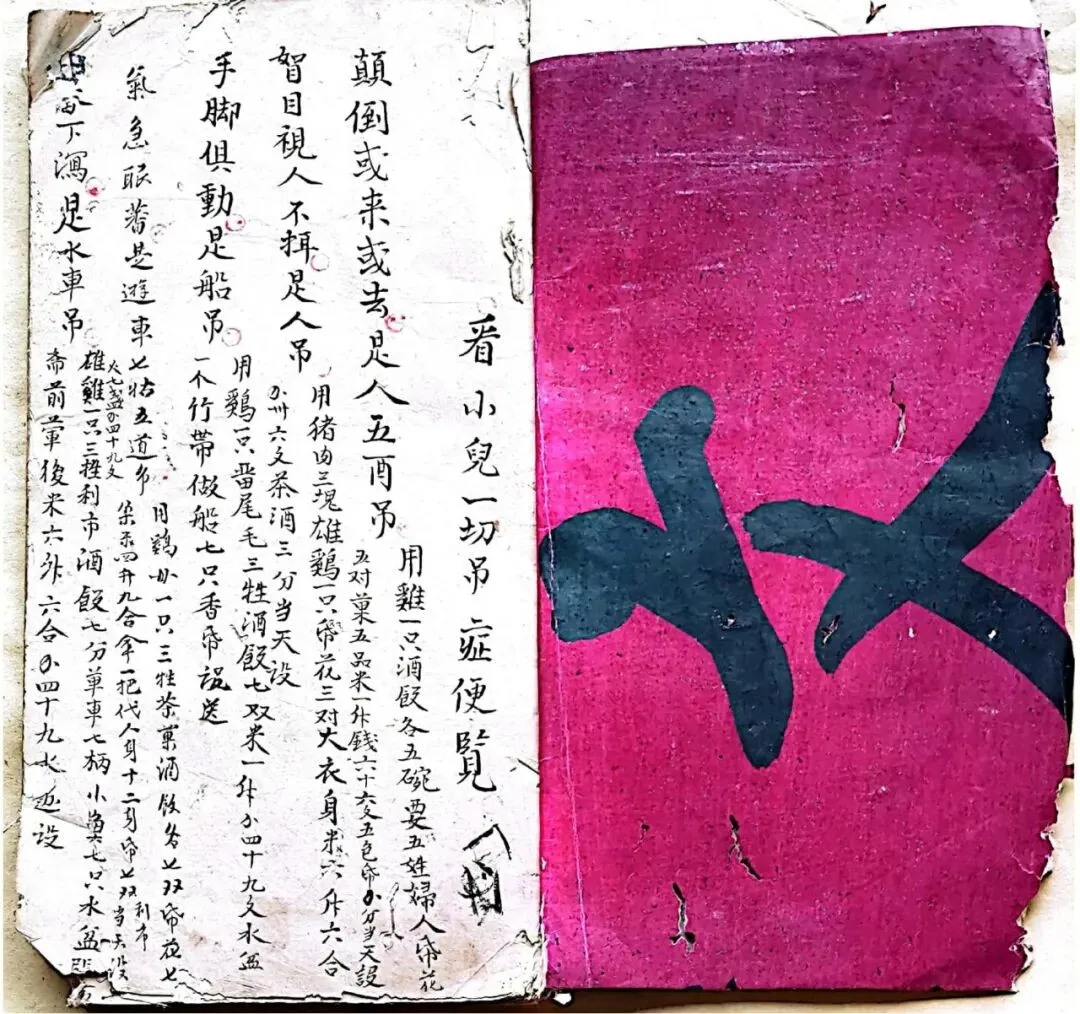 看小兒一切吊症便覽
顛倒或来或去是人五酉吊
用雞一只酒飯各五碗要五姓婦人帋花
五对菓五品米一升錢六十六文五色帋分当天設
目視人不拜是人吊
用猪肉三塊雄鷄一只帋花三对大衣身米六升六合
卅六文茶酒三分当天设
手脚俱動是船吊
用鷄一只番尾毛三牲酒飯七双米一升四十九文水盆
一个竹帶做船七只香帋送
氣急眼蕃是遊車
七姑五道
用鷄一只三牲茶菓酒飯各七双帋花七
四升九合傘一把代人身十二身帋七双利市当天设
火七盞四十九文
下瀉是水車吊
雄雞一只三牲利市酒飯七分車七柄小魚七只水盆
斋前葷後米六升六合四十九設